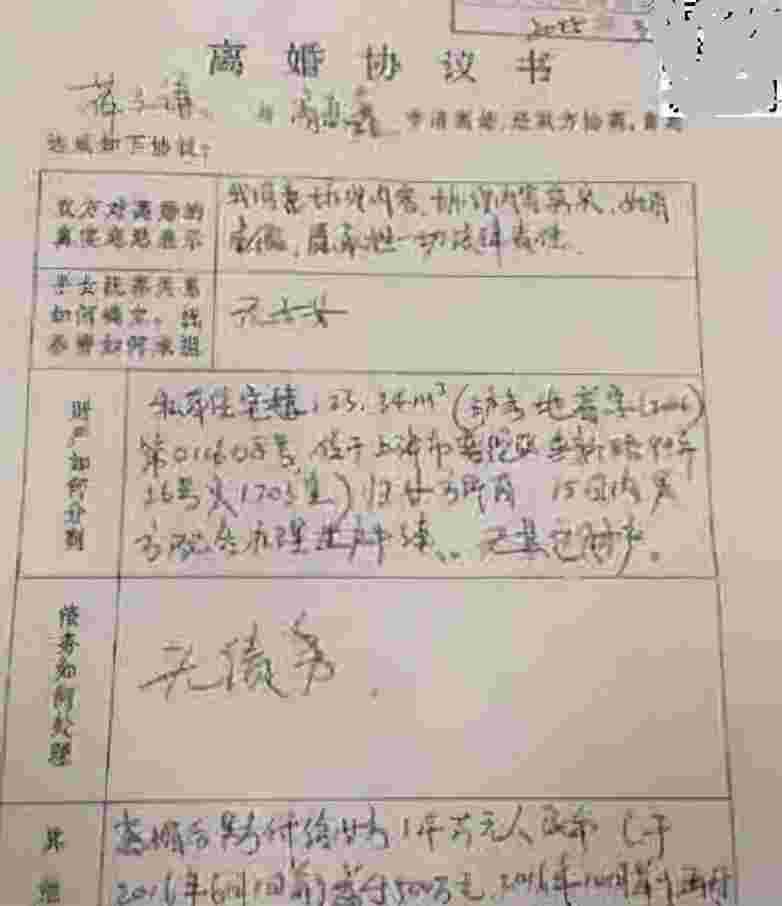 离婚协议书
与 申请离婚,经双方协商,自愿
达成如下协议:
双方对离婚的
真实意思表示
我同意协议内容,协议内容真实,如有
虚假,愿承担一切法律责任.
子女抚养关系
如何确定,抚
养费如何承担
无子女
财产如何分割
第011605号,位于上海市普陀区
16号 1703室)归女方所有 15日内男
方配合办理过户手续、无其它财产。
债务如何处理
无债务.
其
他
离婚后男方付给女方1千万元人民币(于
2016年6月1日前 支付500万元,2016年10月前